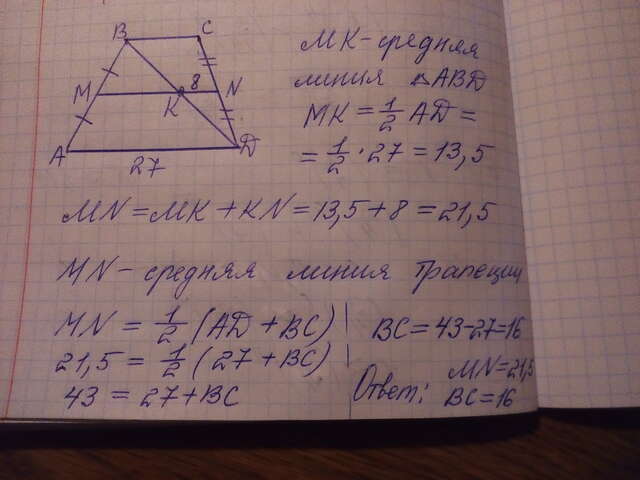 B C
M 8 N
K
A D
27
MK - средняя
линия △ABD
MK = 1/2 AD =
= 1/2 · 27 = 13,5
MN = MK + KN = 13,5 + 8 = 21,5
MN - средняя линия трапеции
MN = 1/2 (AD + BC)
21,5 = 1/2 (27 + BC)
43 = 27 + BC
BC = 43 - 27 = 16
Ответ: MN = 21,5
BC = 16